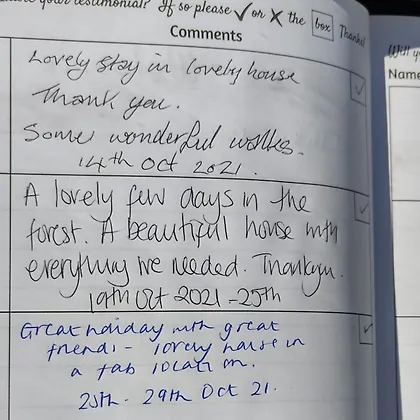 your testimonial? If so please ✓ or ✗ the box Thanks!
Comments
Lovely stay in lovely house
Thank you.
Some wonderful walks.
14th Oct 2021.
A lovely few days in the
forest. A beautiful house with
everything we needed. Thankyou.
19th Oct 2021 - 25th
Great holiday with great
friends - lovely house in
a fab location.
25th - 29th Oct 21.
Name